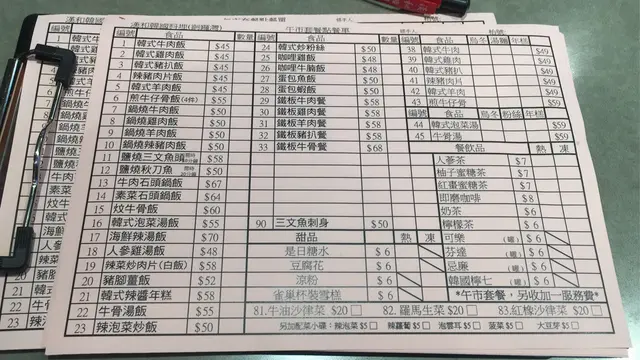 漢和韓國料理
午市套餐點餐單
編號 食品 數量 編號 食品 數量 編號 食品 烏冬 湯麵 年糕
1 韓式牛肉飯 $45 24 韓式炒粉絲 $50 38 韓式牛肉 $49
2 韓式雞肉飯 $45 25 咖喱雞飯 $48 39 韓式雞肉 $49
3 韓式豬扒飯 $45 26 咖喱牛腩飯 $48 40 韓式豬扒 $49
4 辣豬肉片飯 $45 27 蛋包魚飯 $50 41 辣豬肉片 $49
5 韓式羊肉飯 $45 28 蛋包蝦飯 $50 42 韓式羊肉 $49
6 煎牛仔骨飯(4件) $55 29 鐵板牛肉餐 $58 43 煎牛仔骨 $59
7 鍋燒牛肉飯 $50 30 鐵板雞肉餐 $58 編號 食品 烏冬 粉絲 年糕
8 鍋燒雞肉飯 $50 31 鐵板羊肉餐 $58 44 韓式泡菜湯 $59
9 鍋燒羊肉飯 $50 32 鐵板豬扒餐 $58 45 牛骨湯 $59
10 鍋燒辣豬肉飯 $50 33 鐵板牛骨餐 $68 餐飲品 熱 凍
11 鹽燒三文魚頭 $58 人參茶 $7
12 鹽燒秋刀魚 $50 柚子蜜糖茶 $7
13 牛肉石頭鍋飯 $67 紅棗蜜糖茶 $7
14 素菜石頭鍋飯 $64 即磨咖啡 $8
15 炆牛骨飯 $60 奶茶 $6
16 韓式泡菜湯飯 $55 90 三文魚刺身 $50 檸檬茶 $6
17 海鮮辣湯飯 $70 甜品 熱 凍 可樂 (罐) $6
18 人參雞湯飯 $48 是日糖水 $6 芬達 (罐) $6
19 辣菜炒肉片(白飯) $58 豆腐花 $6 忌廉 (罐) $6
20 豬腳薑飯 $52 涼粉 $6 韓國檸七 (罐) $6
21 韓式辣醬年糕 $58 雀巢杯裝雪糕 $6 *午市套餐，另收加一服務費*
22 牛骨湯飯 $55 81.牛油沙律菜 $20□ 82. 羅馬生菜 $20□ 83.紅橡沙律菜 $20□
23 辣泡菜炒飯 $50 另加配菜小碟：辣泡菜 $5□ 辣蘿蔔 $5□ 泡雲耳 $5□ 菠菜 $5□ 大豆芽 $5□